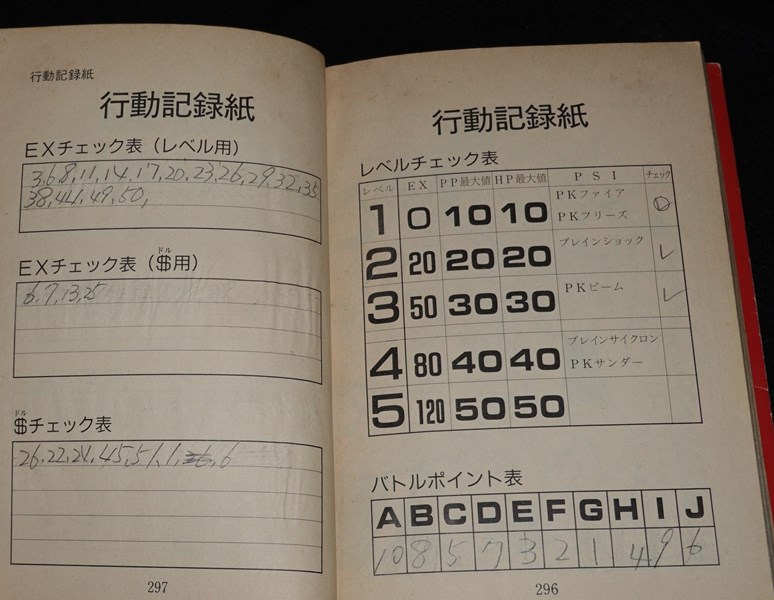 行動記録紙
行動記録紙
EXチェック表（レベル用）
3,6,8,11,14,17,20,23,26,29,32,35
38,44,49,50,
EXチェック表（$用）
ドル
6,7,13,25
$チェック表
ドル
26,22,24,45,51,1,26,6
297
行動記録紙
レベルチェック表
レベル EX PP最大値 HP最大値 PSI チェック
1 0 10 10 PKファイア
PKフリーズ
2 20 20 20 ブレインショック ✓
3 50 30 30 PKビーム ✓
4 80 40 40 ブレインサイクロン
PKサンダー
5 120 50 50
バトルポイント表
A B C D E F G H I J
10 8 5 7 3 2 1 4 9 6
296